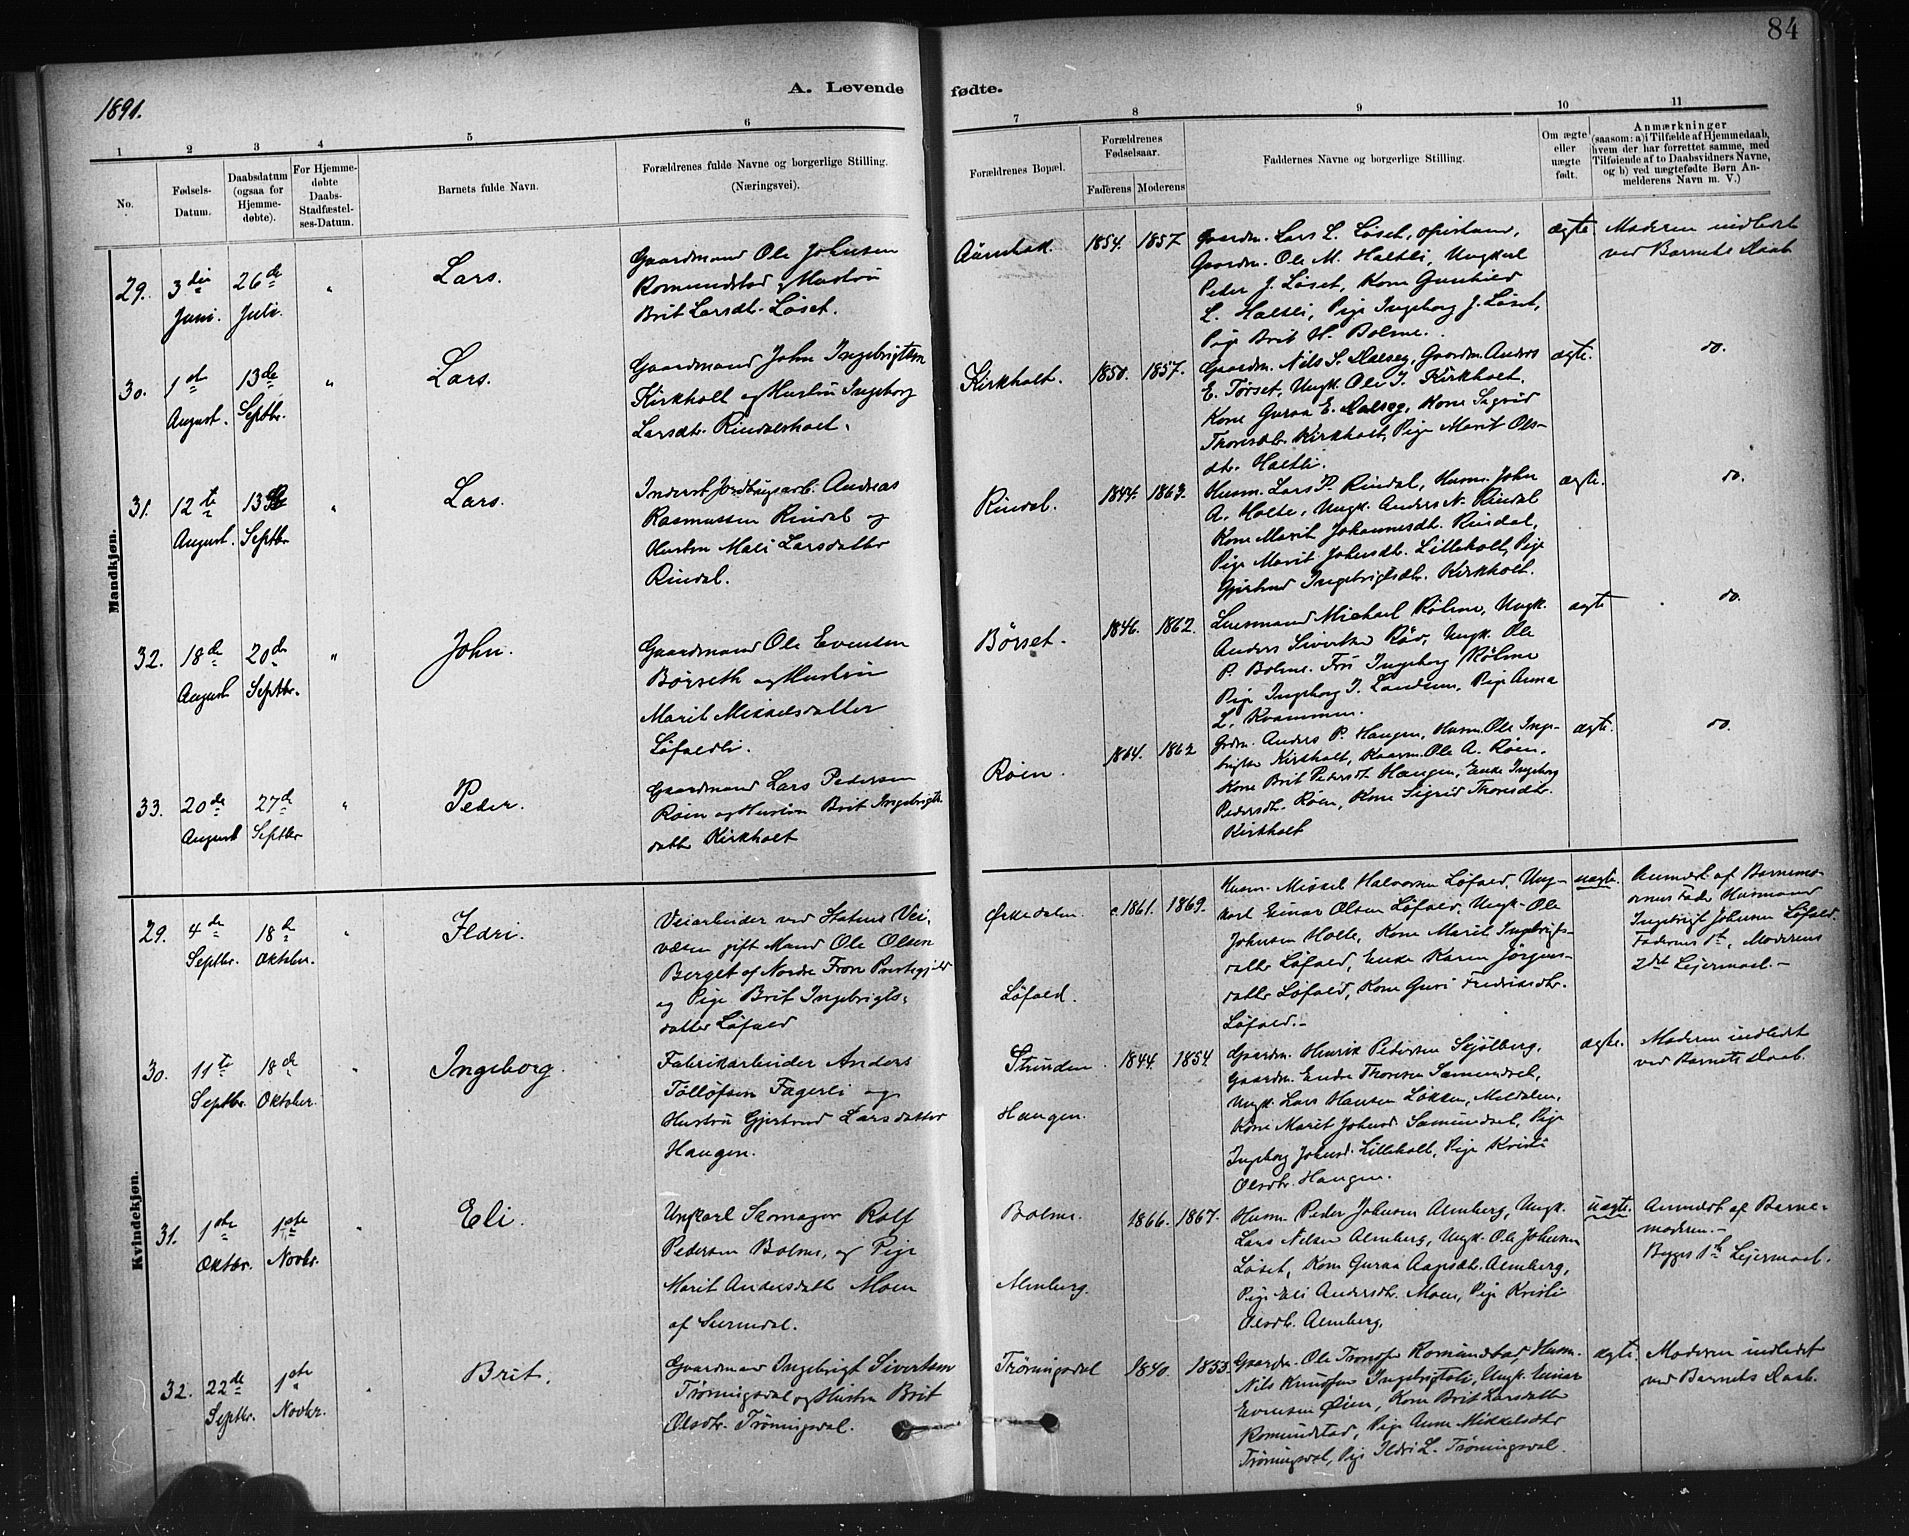 84
1891.
A. Levende fødte.
1 2 3 4 5 6 7 8 9 10 11
No.
Fødsels-Datum.
Daabsdatum (ogsaa for Hjemmedøbte).
For Hjemmedøbte Daabs-Stadfæstelses-Datum.
Barnets fulde Navn.
Forældrenes fulde Navne og borgerlige Stilling. (Næringsvei).
Forældrenes Bopæl.
Forældrenes Fødselsaar.
Faderens Moderens
Faddernes Navne og borgerlige Stilling.
Om ægte eller uægte født.
Anmærkninger
(saasom: a) i Tilfælde af Hjemmedaab, hvem der har forrettet samme, med Tilføiende af to Daabsvidners Navne, og b) ved uægtefødte Børn Anmelderens Navn m. V.)
Mandkjøn.
29. 3die Juni. 26de Juli. " Lars.
Gaardmand Ole Johnsen
Romundstad og Hustru
Brit Larsdt. Løset.
1854. 1857
Gaardm. Lars L. Løset,
Gaardm. Ole M. Haltli, Ungkarl
Peder J. Løset, Kone Gunhild
L. Haltli, Pige Ingeborg J. Løset,
Pige Brit H. Bolme.
ægte
Moderen indledet
ved Barnets Daab.
30. 1ste August. 13de Septbr. " Lars.
Gaardmand John Ingebrigtsen
Kirkholt og Hustru Ingeborg
Larsdtr. Rindalsholt.
Kirkholt. 1850. 1857.
Gaardm. Nils S. Dalseg, Gaardm. Anders
E. Tørset, Ungk. Ole J. Kirkholt.
Kone Guraa E. Dalseg, Kone Sigrid
Thoresdtr. Kirkholt, Pige Marit Ols-
dtr. Haltli.
ægte.
do.
31. 12te August. 13de Septbr " Lars.
Inderst Jordbrugsarb. Andreas
Rasmussen Rindal og
Hustru Mali Larsdatter
Rindal.
Rindal. 1844. 1863.
Husm. Lars P. Rindal, Husm. John
A. Holte, Ungk. Anders N. Rindal
Kone Marit Johannesdt. Rindal,
Pige Marit Johnsdt. Lilleholt, Pige
Gjertrud Ingebrigtsdtr. Kirkholt.
ægte.
do.
32. 18de August 20de Septbr. " John.
Gaardmand Ole Evensen
Børseth og Hustru
Marit Mikkelsdatter
Løfaldli.
Børset. 1846. 1862.
Lensmand Michael Kølme, Ungk.
Anders Sivertsen Rød, Ungk. Ole
P. Bolme. Fru Ingeborg Kølme
Pige Ingeborg J. Landsem, Pige Anna
L. Kvammen.
ægte
do.
33. 20de August 27de Septbr " Peder.
Gaardmand Lars Pedersen
Røen og Hustru Brit Ingebrigts-
datter Kirkholt
Røen. 1864. 1862
Grdm. Anders P. Haugen, Husm. Ole Inge-
brigtsen Kirkholt, Kaarm. Ole A. Røen,
Kone Brit Pedersdt. Haugen, Enke Ingeborg
Pedersdtr. Røen, Kone Sigrid Thoresdtr.
Kirkholt
ægte.
do.
Kvindekjøn.
29. 4de Septbr. 18de Oktober. " Ildri.
Veiarbeider ved Statens Vei-
væsen gift Mand Ole Olsen
Berget af Nordre Fron Præstegjeld
og Pige Brit Ingebrigts-
datter Løfald
Ørkedalen.
Løfald.
c. 1861. 1869.
Husm. Mikkel Halvorsen Løfald, Ung-
karl Einar Olsen Løfald, Ungk. Ole
Johnsen Holte, Kone Marit Ingebrigts-
datter Løfald, Enke Karen Jørgens-
datter Løfald, Kone Guri Fredriksdtr.
Løfald.-
uægte.
Anmeldt af Barnemo-
derens Fader Husmand
Ingebrigt Johnsen Løfald.
Faderens 1st, Moderens
2det Leiermaal.-
30. 11te Septbr. 18de Oktober. " Ingeborg.
Fabrikarbeider Anders
Tolløfsen Fagerli og
Hustru Gjertrud Larsdatter
Haugen.
Strinden
Haugen.
1844. 1854.
Gaardm. Henrik Pedersen Sjølberg,
Gaardm. Endre Thoresen Sæmundset,
Ungk. Lars Hansen Løkken, Meldalen,
Kone Marit Johnsd. Sæmundset, Pige
Ingeborg Johnsd. Lilleholt, Pige Kristi
Olsdtr. Haugen.
ægte.
Moderen indledet
ved Barnets Daab.
31. 1ste Oktbr. 1ste Novbr. " Eli.
Ungkarl Skomager Rolf
Pedersen Bolme, og Pige
Marit Andersdatter Moen
af Surendal.
Bolme.
Almberg.
1866. 1867.
Husm. Peder Johnsen Almberg, Ungk.
Lars Nilsen Almberg, Ungk. Ole Johnsen
Løset, Kone Guraa Aagesdt. Almberg,
Pige Eli Andersdtr. Moen, Pige Kristi
Olsdtr. Almberg.
uægte.
Anmeldt af Barne-
moderen.-
Begges 1ste Leiermaal.
32. 22de Septbr. 1ste Novbr. " Brit.
Gaardmand Ingebrigt Sivertsen
Trønningsdal og Hustru Brit
Olsdtr. Trønningsdal.
Trønningsdal 1840. 1853.
Gaardm. Ole Trondsen Romundstad, Husm.
Nils Knudsen Ingebrigtsli, Ungk. Einar
Evensen Øien, Kone Brit Larsdatter
Romundstad, Pige Anne Mikkelsdtr
Trønningsdal, Pige Ildri L. Trønningsdal.
ægte.
Moderen indledet
ved Barnets Daab.